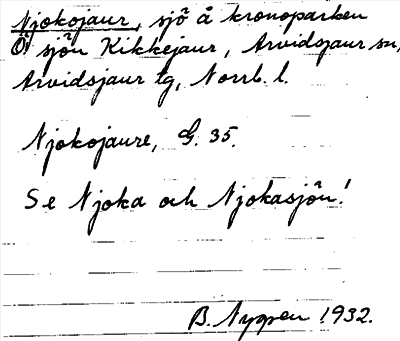 Njokojaur, sjö å kronoparken
Ö sjön Kikkejaur, Arvidsjaur sn,
Arvidsjaur tg, Norrb. l.
Njokojaure, G. 35.
Se Njoka och Njokasjön!
B. Nyppen 1932.